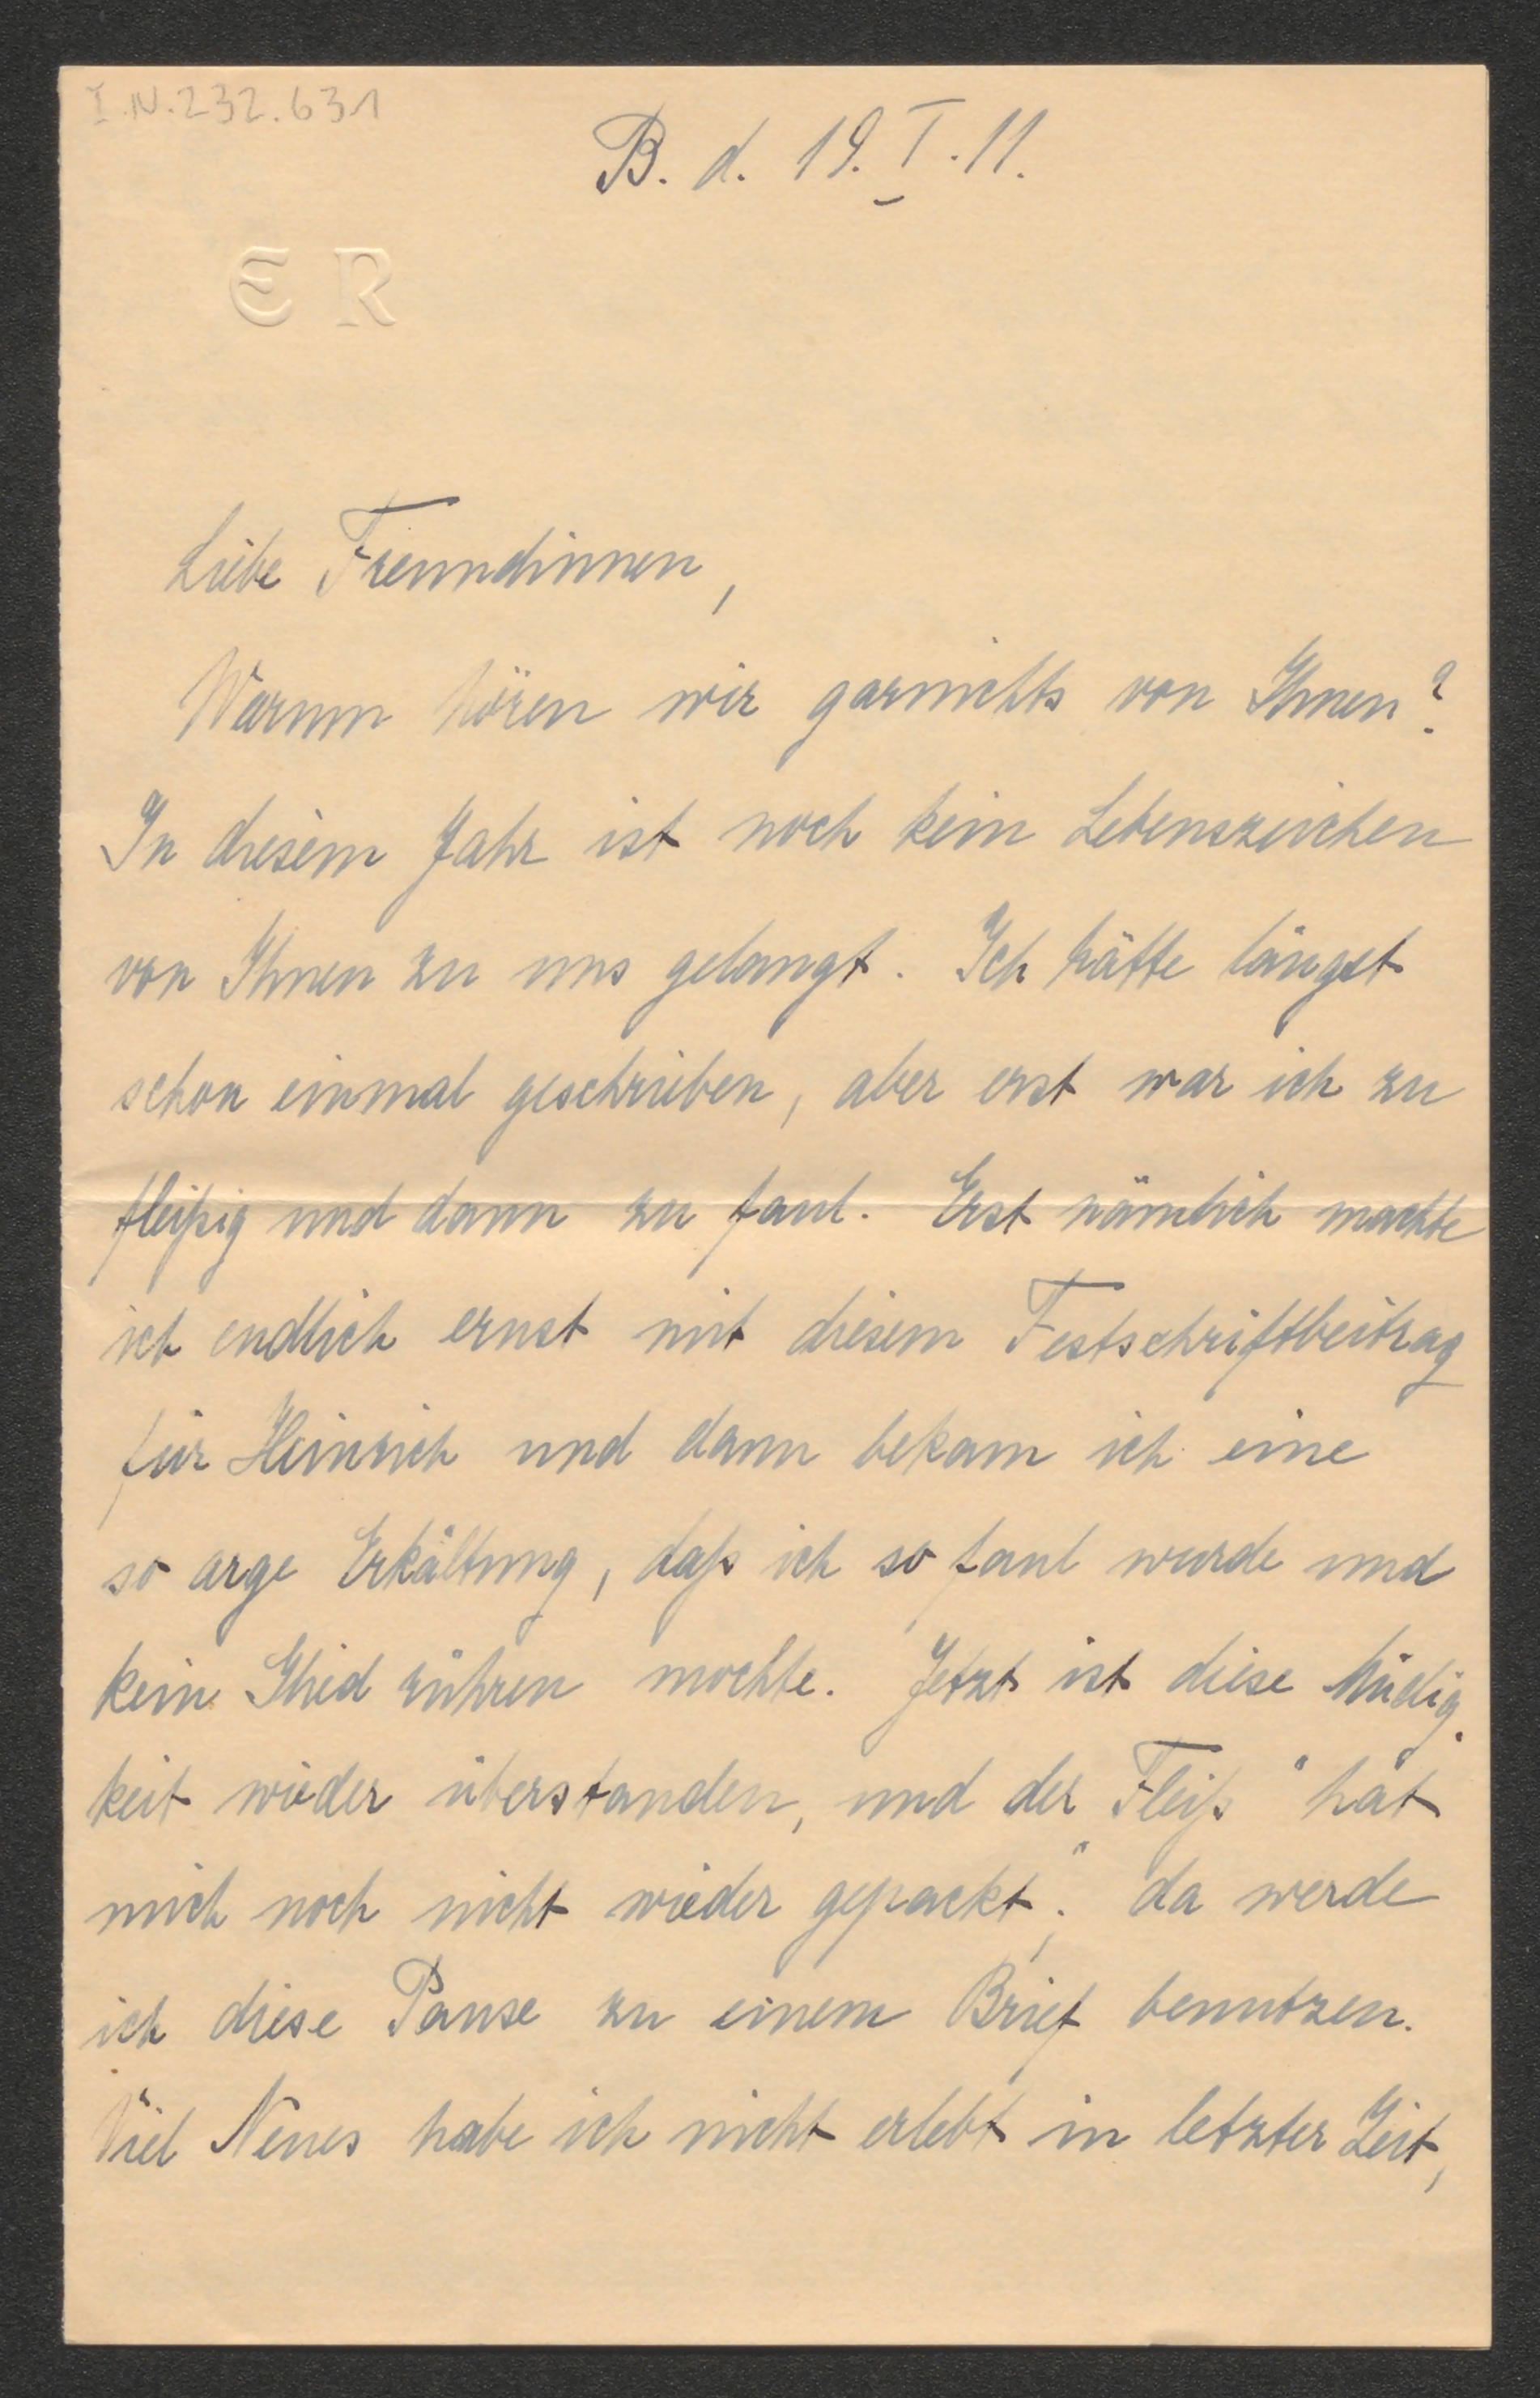 I.N.232.631
B. d. 19. I. 11.
E R
Liebe Freundinnen,
Warum hören wir garnichts von Ihnen?
In diesem Jahr ist noch kein Lebenszeichen
von Ihnen zu uns gelangt. Ich hätte längst
schon einmal geschrieben, aber erst war ich zu
fleißig und dann zu faul. Erst nämlich machte
ich endlich ernst mit diesem Festschriftbeitrag
für Heinrich und dann bekam ich eine
so arge Erkältung, daß ich so faul wurde und
kein Glied rühren mochte. Jetzt ist diese Müdig-
keit wieder überstanden, und der Fleiß "hat
mich noch nicht wieder gepackt"; da werde
ich diese Pause zu einem Brief benutzen.
Viel Neues habe ich nicht erlebt in letzter Zeit,